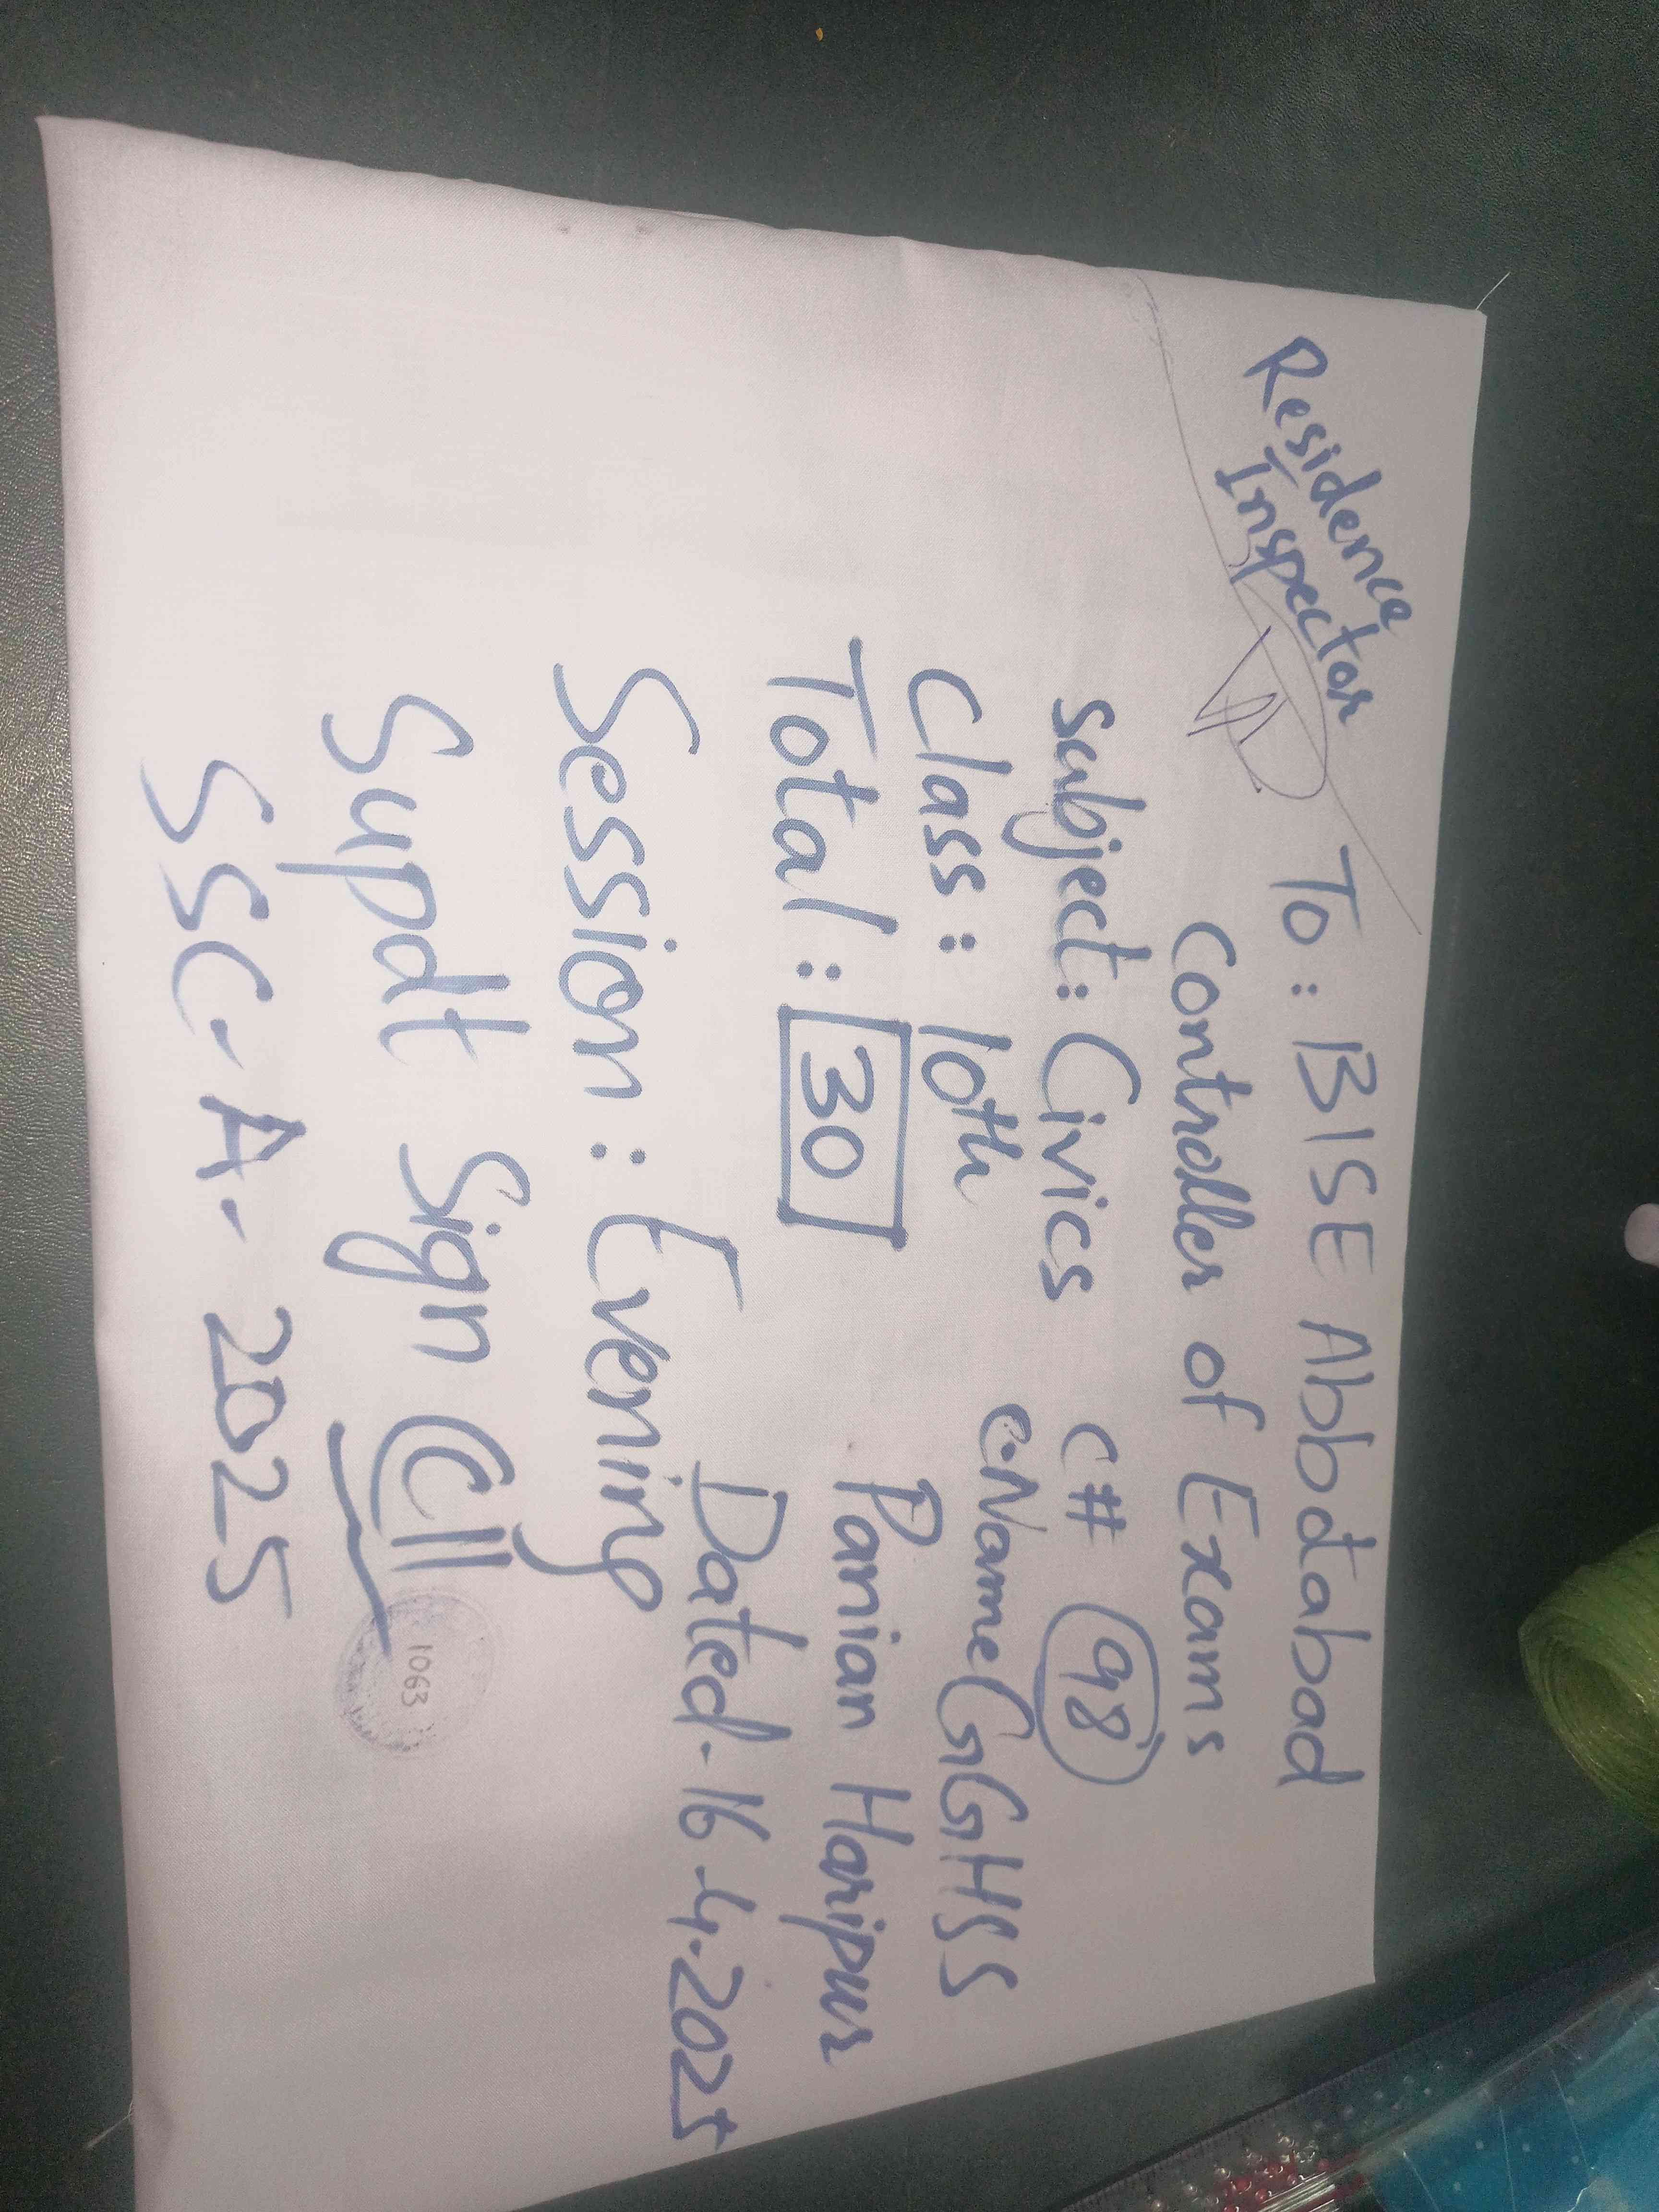 Residence
Inspector
To: BISE Abbdtabad
Controller of Exams
Subject: Civics
C# 98
Class: 10th
C.Name GGHSS
Total: 30
Panian Haripur
Session: Evening
Dated. 16.4.2025
Supdt Sign
1063
SSC-A-2025